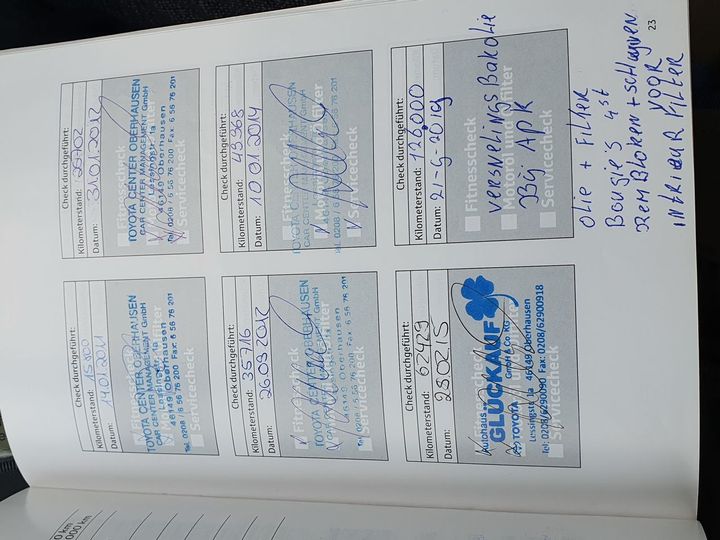 Check durchgeführt:
Kilometerstand: 15.000
Datum: 14.01.2011
Fitnesscheck
TOYOTA CENTER OBERHAUSEN
CAR CENTER MANAGEMENT GmbH
Lessingstr. 1a
46149 Oberhausen
Tel. 0208 / 6 56 76 200 Fax: 6 56 76 201
Servicecheck
Check durchgeführt:
Kilometerstand: 23102
Datum: 31.01.2012
Fitnesscheck
TOYOTA CENTER OBERHAUSEN
CAR CENTER MANAGEMENT GmbH
Lessingstr. 1a
46149 Oberhausen
Tel. 0208 / 6 56 76 200 Fax: 6 56 76 201
Servicecheck
Check durchgeführt:
Kilometerstand: 35716
Datum:
Fitnesscheck
TOYOTA CENTER OBERHAUSEN
CAR CENTER MANAGEMENT GmbH
46149 Oberhausen
Servicecheck
Check durchgeführt:
Kilometerstand: 43368
Datum: 10 01 2014
Fitnesscheck
TOYOTA CENTER OBERHAUSEN
CAR CENTER MANAGEMENT GmbH
Servicecheck
Check durchgeführt:
Kilometerstand: 62429
Datum: 230215
Fitnesscheck
Autohaus
GLÜCKAUF
TOYOTA GmbH & Co KG
Lessingstr. 1a 46149 Oberhausen
Tel: 0208/6290090 Fax: 0208/62900918
Servicecheck
Check durchgeführt:
Kilometerstand: 126000
Datum: 21-5-2019
Fitnesscheck
versnelingsBakolie
Motoröl und Ölfilter
Bij APK
Servicecheck
olie + Filter
Bougie's 4st
RemBloken + schijven
voor
intrieur Filter
23
000 km